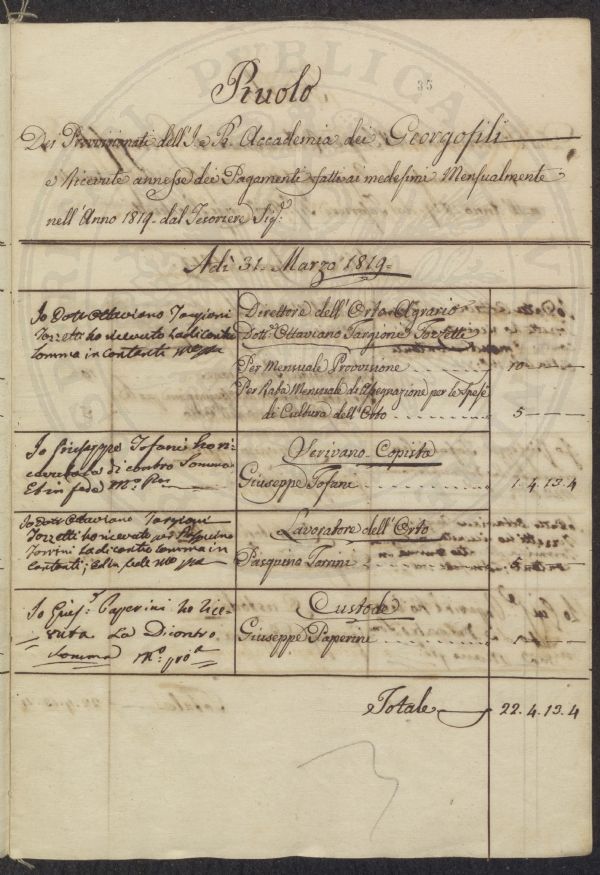 35
Ruolo
Dei Provvisionati dell'I. e R. Accademia dei Georgofili
e ricevute annesse dei Pagamenti fatti ai medesimi Mensualmente
nell'Anno 1819. dal Tesoriere Sig.r
Adì 31. Marzo 1819.
Io Dott Ottaviano Targioni
Tozzetti ho ricevuto la di contro
somma in contanti mo ppa
Direttore dell'Orto Agrario
Dott.r Ottaviano Targioni Tozzetti
Per Mensuale Provvisione 10
Per Rata Mensuale di Assegnazione per le spese
di Cultura dell'Orto 5
Io Giuseppe Tofani ho ri-
cevuto la di contro Somma
Et in fede Mo. Ppa
Scrivano Copista
Giuseppe Tofani 1.4.13.4
Io Dott Ottaviano Targioni
Tozzetti ho ricevuto per Pasquino
Torrini la di contro somma in
contanti; ed in fede mo ppa
Lavoratore dell'Orto
Pasquino Torrini 5
Io Gius.e Paperini ho rice-
vuta La Dicontro
Somma Mo. pria
Custode
Giuseppe Paperini
Totale 22.4.13.4